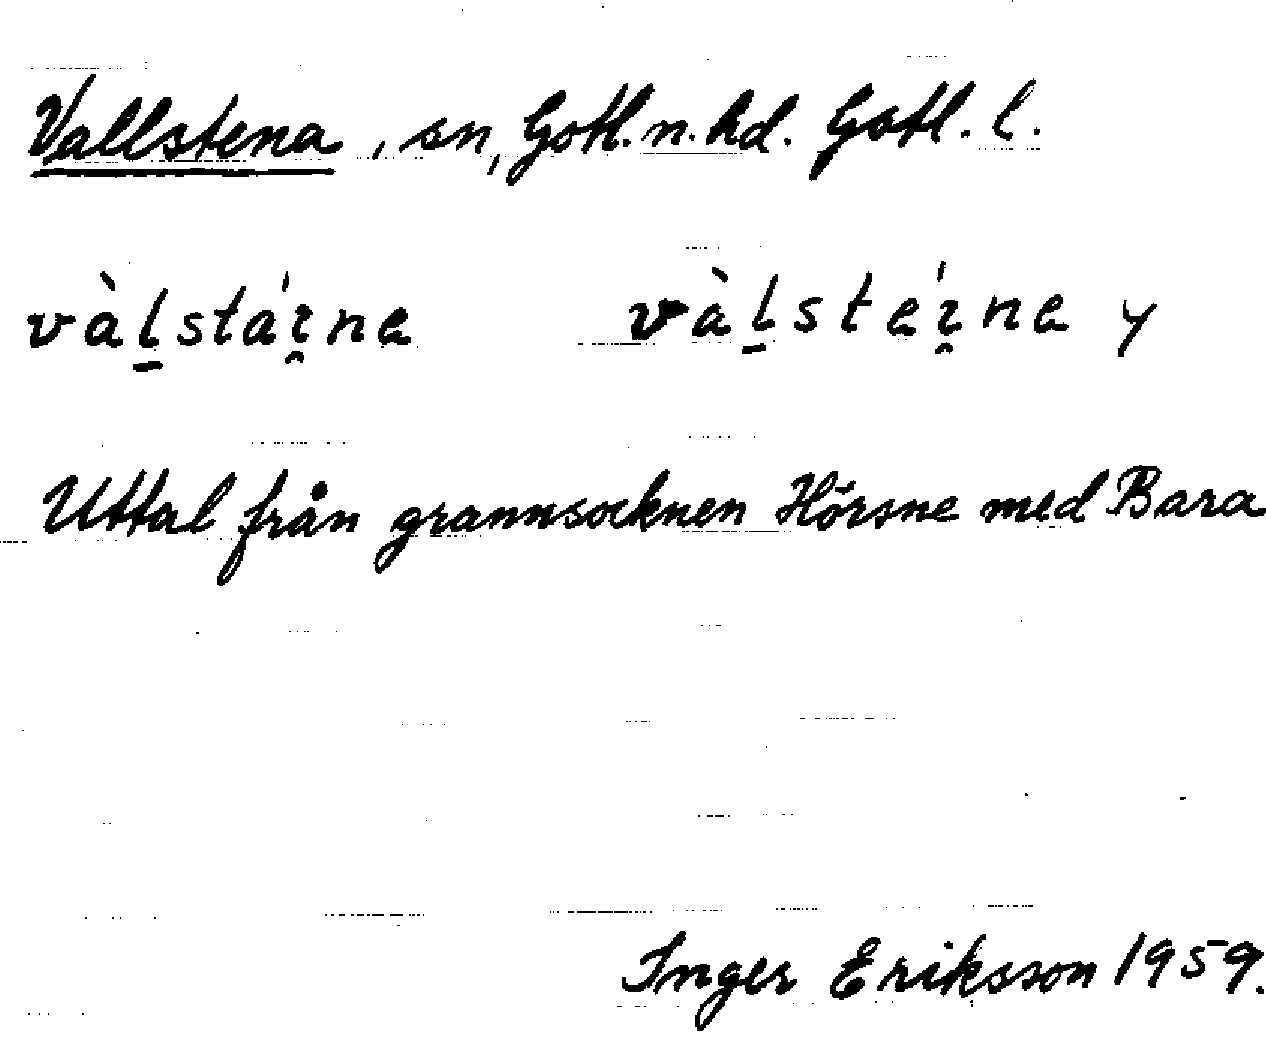 Vallstena, sn, Gotl. n. hd. Gotl. l.
vàl̠stáɪ̯ne vàl̠steɪ̯́ne y
Uttal från grannsocknen Hörsne med Bara
Inger Eriksson 1959.